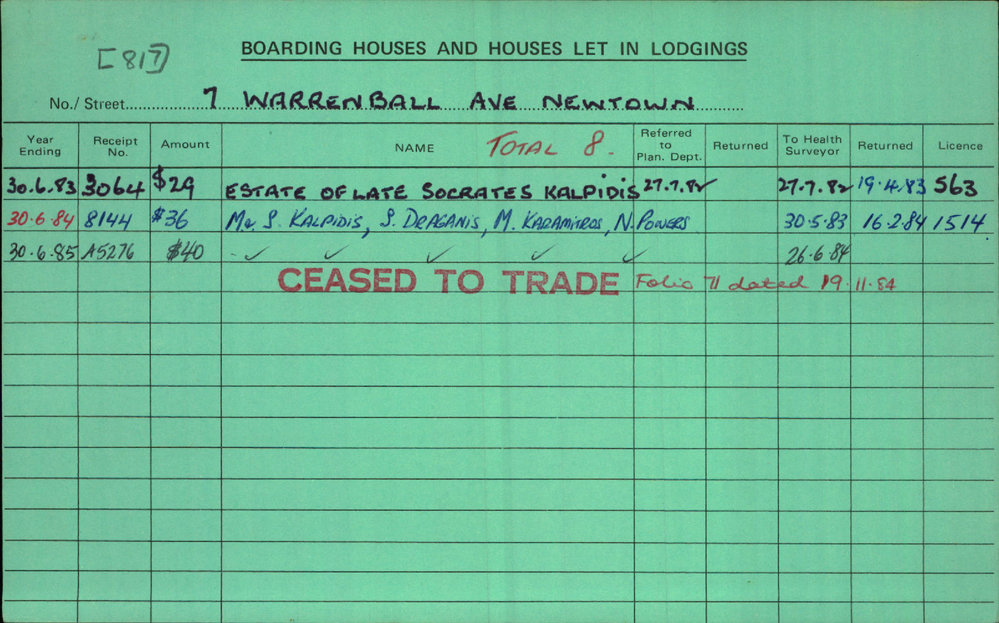 [817]
BOARDING HOUSES AND HOUSES LET IN LODGINGS
No./ Street 7 WARRENBALL AVE NEWTOWN
Year Ending Receipt No. Amount NAME TOTAL 8. Referred to Plan. Dept. Returned To Health Surveyor Returned Licence
30.6.83 3064 $29 ESTATE OF LATE SOCRATES KALPIDIS 27.7.82 27.7.82 19.4.83 563
30.6.84 8144 $36 S. KALPIDIS, S. DRAGANIS, M. N. POWERS 30.5.83 16.2.84 1514
30.6.85 A5276 $40 - ✓ ✓ ✓ ✓ ✓ 26.6.84
CEASED TO TRADE Folio 71 dated 19.11.84